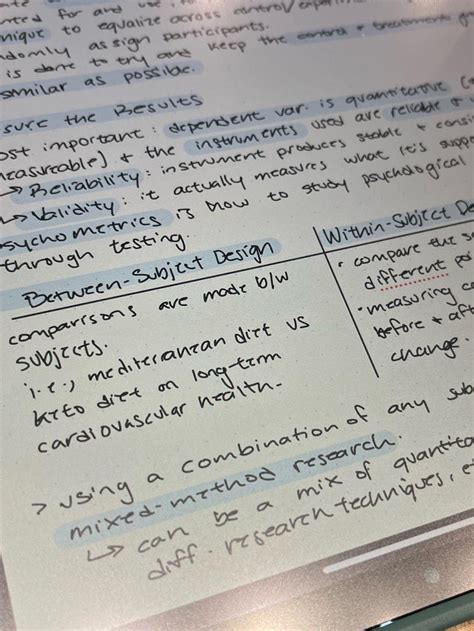 nted for and use
nique to equalize across control/exper
domly assign participants.
is done to try and keep the control & treatments
similar as possible.
sure the Results
ost important: dependent var. is quantitative
measureable) & the instruments used are reliable &
↳ Reliability: instrument produces stable & consi
↳ Validity: it actually measures what it's suppo
sychometrics is how to study psychological
through testing.
Between-Subject Design
comparisons are made b/w
subjects.
i.e., mediterranean diet vs
keto diet on long-term
cardiovascular health.
Within-Subject De
• compare the s
different po
• measuring c
before & aft
change.
> using a combination of any sub
mixed-method research.
↳ can be a mix of quantita
diff. research techniques, e